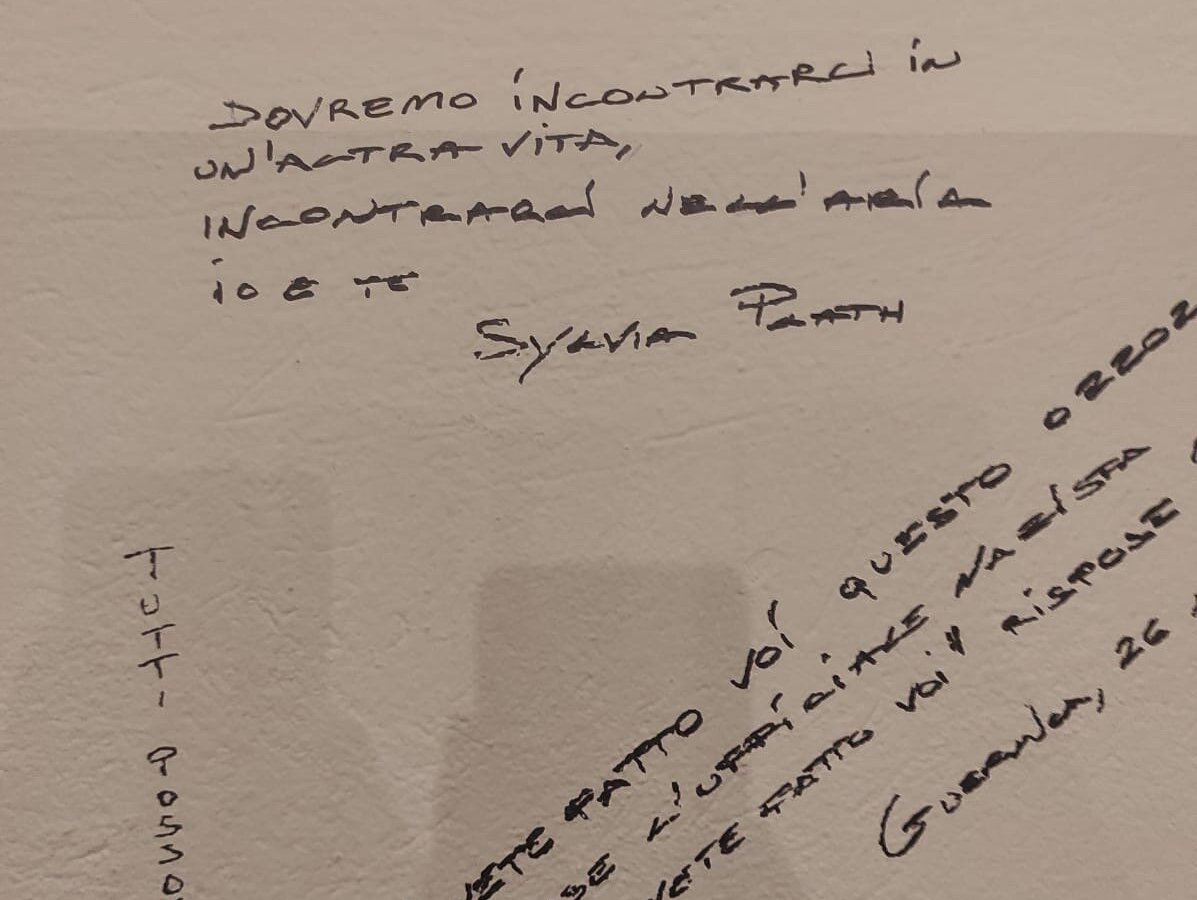 DOVREMO INCONTRARCI IN
UN'ALTRA VITA,
INCONTRARCI NELL'ARIA
IO E TE
SYLVIA PLATH
VETE FATTO VOI QUESTO ORROR
SE L'UFFICIALE NAZISTA
VETE FATTO VOI" RISPOSE
GUERNICA, 26
TUTTI POSSO